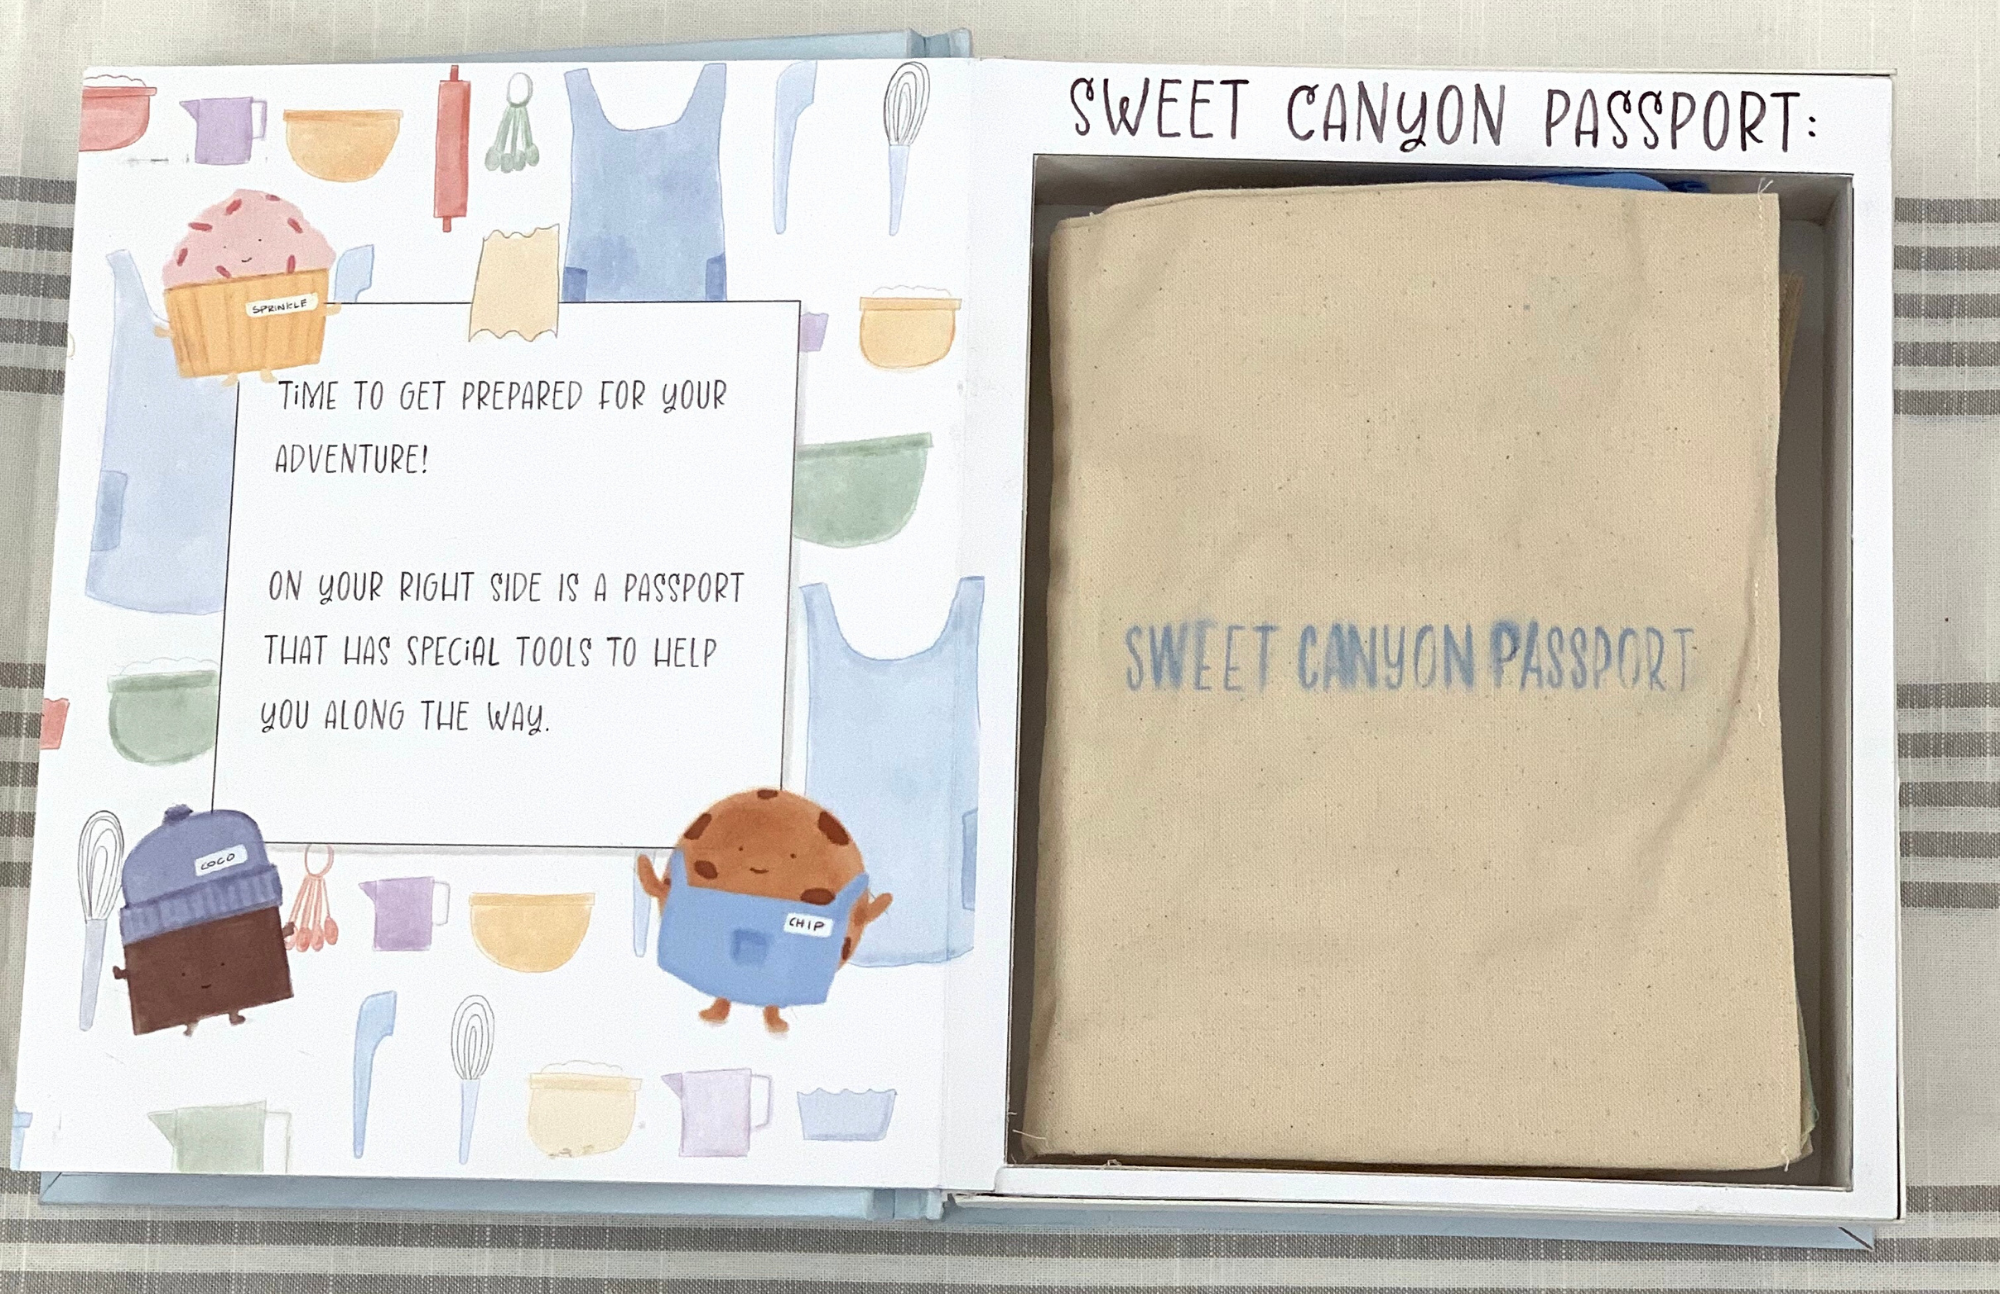 SPRINKLE
TIME TO GET PREPARED FOR YOUR
ADVENTURE!
ON YOUR RIGHT SIDE IS A PASSPORT
THAT HAS SPECIAL TOOLS TO HELP
YOU ALONG THE WAY.
COCO
CHIP
SWEET CANYON PASSPORT:
SWEET CANYON PASSPORT